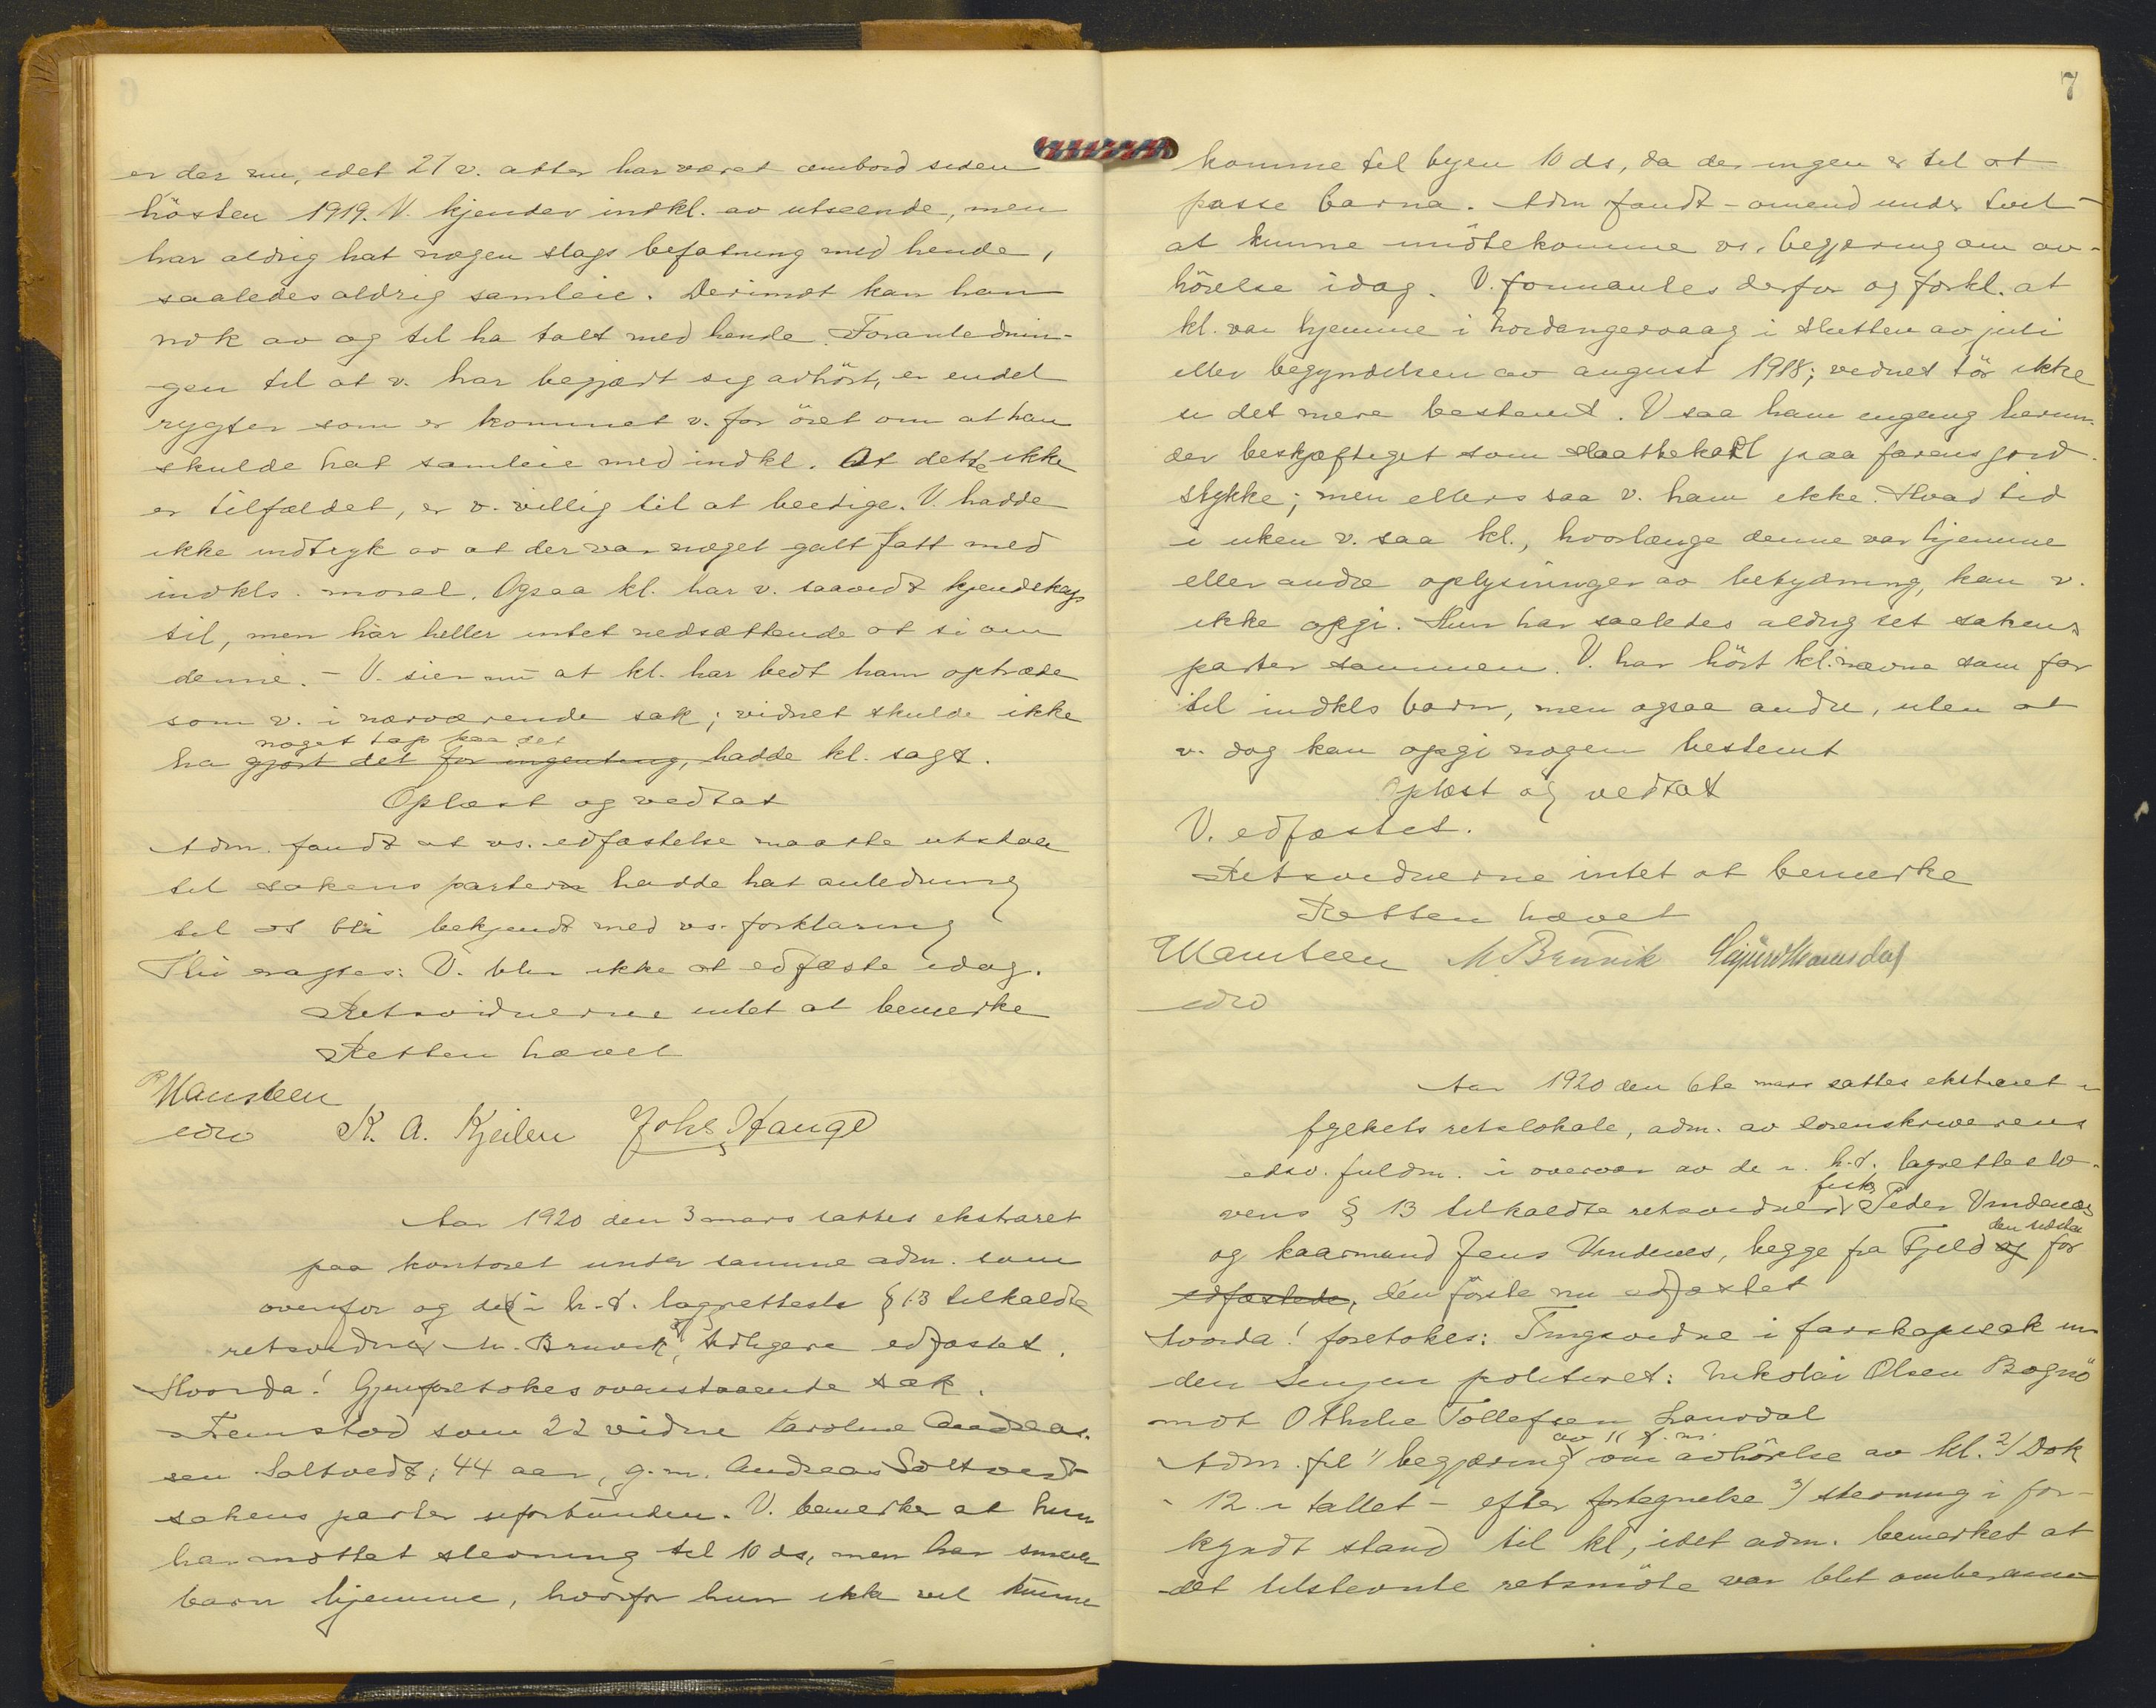 er der nu, idet 27 v. atter har været ombord siden
hösten 1919. V. kjender indkl. av utseende, men
har aldrig hat nogen slags befatning med hende,
saaledes aldrig samleie. Derimot kan han
nok av og til ha talt med hende. Foranlednin-
gen til at v. har begjært sig avhört, er endel
rygter som er kommet v. for öret om at han
skulde hat samleie med indkl. At dette ikke
er tilfældet, er v. villig til at beedige. V. hadde
ikke indtryk av at der var noget galt fatt med
indkls. moral. Ogsaa kl. har v. saavidt kjendskap
til, men har heller intet nedsættende at si om
denne. - V. sier nu at kl. har bedt ham optræde
som v. i nærværende sak; vidnet skulde ikke
noget tap paa det
ha gjort det for ingenting, hadde kl. sagt.
Oplæst og vedtat
Adm. fandt at vs. edfæstelse maatte utstaa
til sakens parter hadde hat anledning
til at bli bekjendt med vs. forklaring
Thi ragtes: V. blir ikke at edfæste idag.
Retsvidnerne intet at bemerke
Retten hævet
Mansteen
edsv K. A. Kjeilen Johs Hauge
Aar 1920 den 3 mars sattes ekstraret
paa kontoret under samme adm. som
ovenfor og det i h. t. lagrettesl. § 13 tilkaldte
retsvidne M. Bruvik, tidligere edfæstet.
Hvorda! Gjenforetokes ovenstaaende sak.
Femstod som 22 vidne Karoline Andreas.
sen Soltvedt, 44 aar, g. m. Andreas Soltvedt
sakens parter uforbunden. V. bemerker at hun
har mottat stevning til 10 ds, men har smaa
barn hjemme, hvorfor hun ikke vel kunne
7
komme til byen 10 ds, da der ingen er til at
passe barna. Adm fandt - omend under tvil -
at kunne imötekomme vs. begjæring om av-
hörelse idag. V. formantes derfor og forkl. at
kl. var hjemme i Hordangervaag i slutten av juli
eller begyndelsen av august 1918; vidnet tör ikke
si det mere bestemt. V saa ham engang herun-
der beskjæftiget som slaattekarl paa farens jord-
stykke; men ellers saa v. ham ikke. Hvad tid
i uken v. saa kl., hvorlænge denne var hjemme
eller andre oplysninger av betydning, kan v.
ikke opgi. Hun har saaledes aldrig set sakens
parter sammen. V. har hört kl. nævne som far
til indkls barn, men ogsaa andre, uten at
v. dog kan opgi nogen bestemt
Oplæst og vedtat
V. edfæstet.
Retsvidnerne intet at bemerke
Retten hævet
Mansteen M. Bruvik Sigurd
edsv
Aar 1920 den 6te mars sattes ekstraret i
fylkets retslokale, adm. av sorenskriverens
edsv. fuldm. i overvær av de i. h. t. lagrettenslo-
fisker
vens § 13 tilkaldte retsvidner Peder Vindenes
den sidste
og kaarmand Jens Vindenes, begge fra Fjeld og for
edfæstede, den förste nu edfæstet
Hvorda! foretokes: Tingsvidne i farskapssak un-
der Senjen politiret: Nikolai Olsen Bognö
mot Othelie Tollefsen Laurdal
av 11 f. m.
Adm. fr. 1/ begjæring om avhörelse av kl. 2/ Dok
- 12 i tallet - efter fortegnelse 3/ stevning i for-
kyndt stand til kl, idet adm. bemerket at
det tilstevnte retsmöte var blit omberamm-